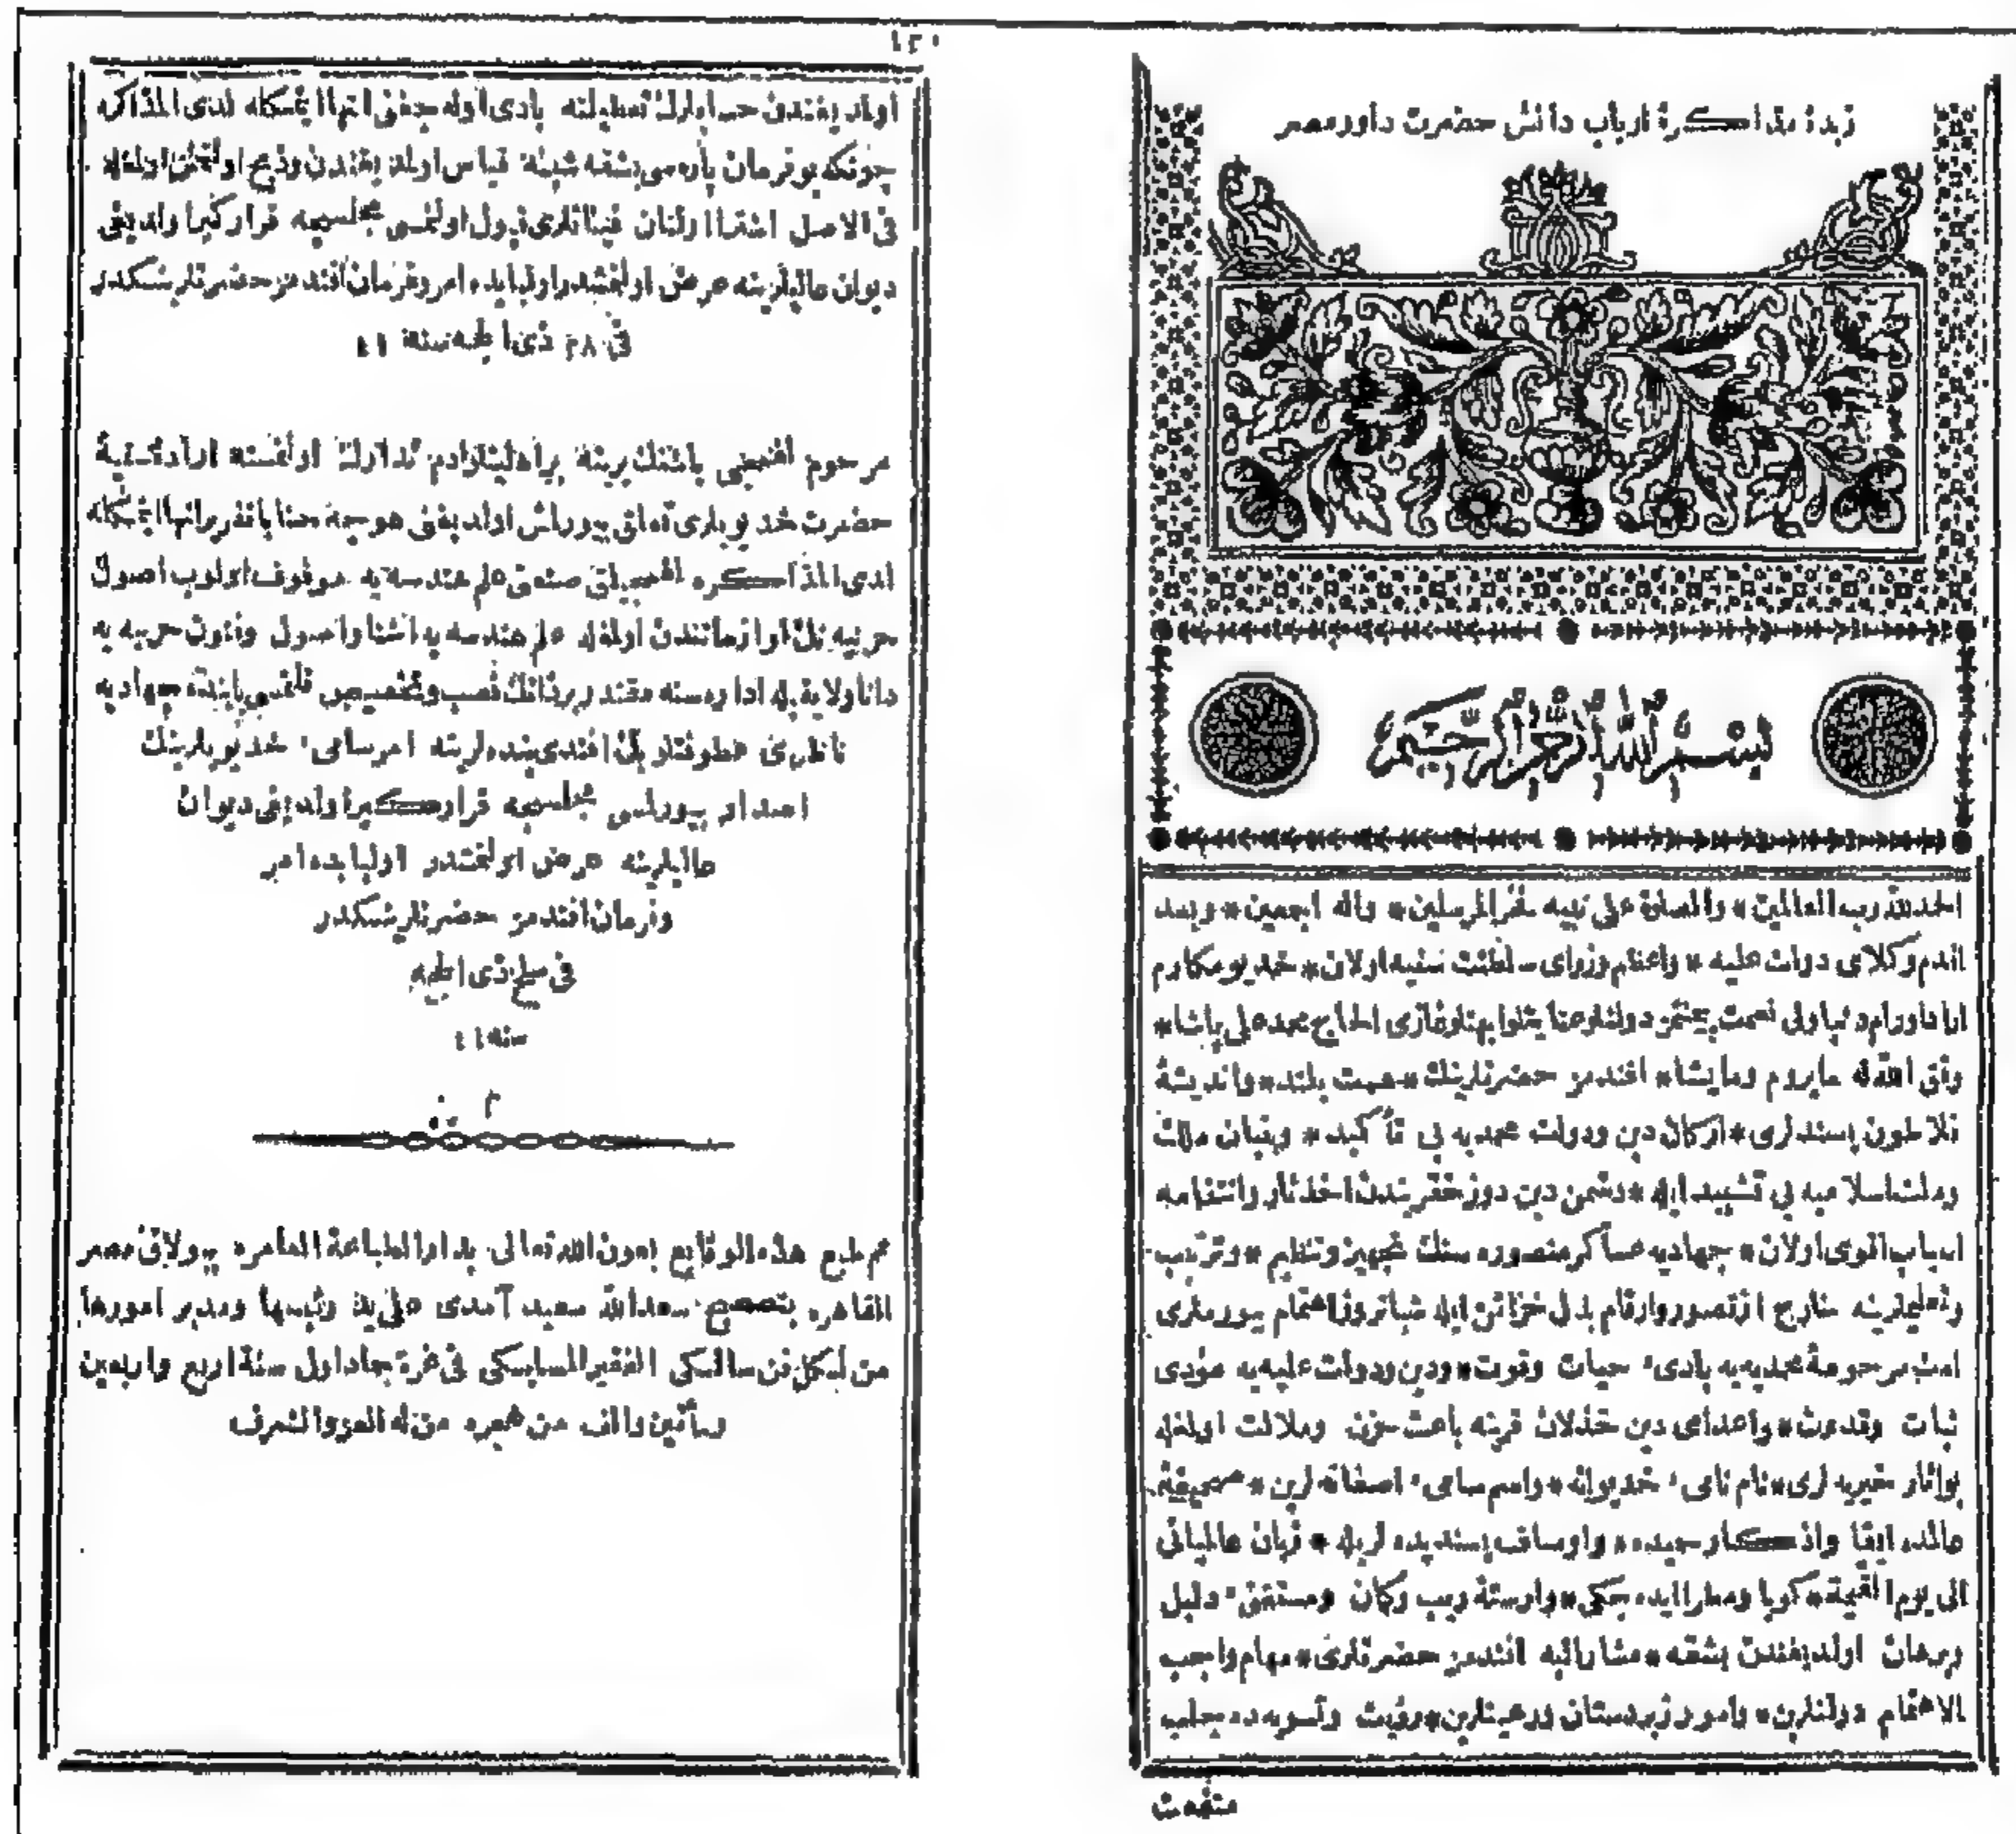 زبدۀ مذاكرۀ ارباب دانش حضرت داور مصر
بسم الله الرحمن الرحيم
الحمد لله رب العالمين * والصلوة على نبيه فخر المرسلين * واله اجمعين * وبعد
افخم وكلاى دولت عليه * واعظم وزراى سلطنت سنيه اولان * خديو مكارم
ولى نعمت دولتلو عنايتلو ابهتلو غازى الحاج محمد على پاشا *
وفق الله له ما يروم وما يشاء * افندمز حضرتلرينك * همت بلند * وانديشۀ
فلاطون پسندلرى * اركان دين ودولت محمديه يى تأكيد * وبنيان ملك
وملت اسلاميه يى تشييد ايله * دشمن دين دوزخ قريندن اخذ ثار وانتقامه
اسباب اقوى اولان * جهاديه عساكر منصوره سنك تجهيز وتنظيم * وترتيب
وتعليملرينه خارج از تصور وارقام بذل خزائن ايله شبانروز اهتمام بيورملرى
امت مرحومۀ محمديه يه بادئ حيات وقوت * ودين ودولت عليه يه مؤدى
ثبات وقدمت * واعداى دين خذلان قرينه باعث حزن وملالت اولمغله
بو اثار خيريه لرى * نام نامئ خديوانه * واسم سامئ اصفانه لرين * صحيفۀ
عالمده ابقا واذكار حميده * واوصاف پسنديده لريله * زبان عالميانى
الى يوم القيمة * كويا ايده جكى * وارستۀ ريب وكمان ومستغنئ دليل
وبرهان اولديغندن بشقه * مشار اليه افندمز حضرتلرى * مهام واجب
الاهتمام دولتلرين * وامور زيردستان ورعيتلرين * رؤيت وتسويه ده جلب
منفعت
١٢٠
اولديغندن تعطيلنه بادى اوله جغنى انها ايتمكله لدى المذاكره
چونكه بو فرمان پاره سى بشقه شيئه قياس اولنه
فى الاصل اشترا اولنان فيئاتلرى قبول اولنمسى مجلسجه قراركير اولديغى
ديوان عاليلرينه عرض اولنمشدر اولبابده امر وفرمان افندمز حضرتلرينكدر
فى ٢٨ ذى الحجه سنه ٤١
مرحوم باشنك يرينه براهليتلو ادم تدارك اولنمسنه ارادۀ سنيۀ
حضرت خديويلرى تعلق بيورلمش اولديغنى
لدى المذاكره صنعتى علم هندسه يه موقوف اولوب اصول
حربيه نك لوازماتندن اولمغله علم هندسه يه اشنا واصول وفنون حربيه يه
دانا ولايقيله اداره سنه مقتدر برينك نصب وتخصيص قلنمسى بابنده جهاديه
ناظرى عطوفتلو بك افندى بنده لرينه امر سامئ خديويلرينك
اصدار بيورلمسى مجلسجه قراركير اولديغى ديوان
عاليلرينه عرض اولنمشدر اولبابده امر
وفرمان افندمز حضرتلرينكدر
فى سلخ ذى الحجه
سنه ٤١
م
تم طبع هذه الوقايع بعون الله تعالى بدار الطباعة العامره ببولاق مصر
القاهره بتصحيح سعد الله سعيد آمدى على يد رئيسها ومدير امورها
من لكل فن سالكى الفقير السابسكى فى غرة جماد اول سنة اربع واربعين
ومأتين والف من هجرة من له العز والشرف